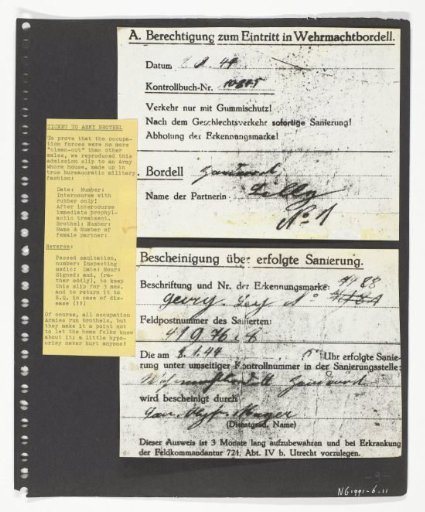 A. Berechtigung zum Eintritt in Wehrmachtbordell.
Datum 2.8.44
Kontrollbuch-Nr. 10845
Verkehr nur mit Gummischutz!
Nach dem Geschlechtsverkehr sofortige Sanierung!
Abholung der Erkennungsmarke!
Bordell
Name der Partnerin
No 1
TICKET TO ARMY BROTHEL
To prove that the occupa-
tion forces were no more
"clean-cut" than other
males, we reproduced this
admission slip to an Army
whore house, made up in
true bureaucratic military
fashion:
Date: Number:
Intercourse with
rubber only!
After intercourse
immediate prophyl-
actic treatment.
Brothel: Number:
Name & number of
female partner:
Reverse:
Passed sanitation,
number: Inspecting
medic: Date: Hour:
Signed: and, (ra-
ther oddly), to keep
this slip for 3 mos.
and to return it to
H.Q. in case of dis-
ease (!!)
Of course, all occupation
Armies run brothels, but
they make it a point not
to let the home folks know
about it: a little hypo-
crisy never hurt anyone!
Bescheinigung über erfolgte Sanierung.
Beschriftung und Nr. der Erkennungsmarke:
Georg
Feldpostnummer des Sanierten:
Die am 2.8.44 Uhr erfolgte Sanie-
rung unter umseitiger Kontrollnummer in der Sanierungsstelle:
wird bescheinigt durch
(Dienstgrad, Name)
Dieser Ausweis ist 3 Monate lang aufzubewahren und bei Erkrankung
der Feldkommandantur 724, Abt. IV b, Utrecht vorzulegen.
NG 1991-6-11